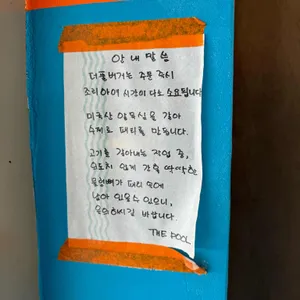 안내말씀
더풀버거는 주문 즉시
조리하여 시간이 다소 소요됩니다
미국산 알목심을 갈아
수제로 패티를 만듭니다.
고기를 갈아내는 작업 중,
의도치 않게 간혹 딱딱한
올레뼈가 패티 속에
남아 있을수 있으니,
유의하시길 바랍니다
THE POOL